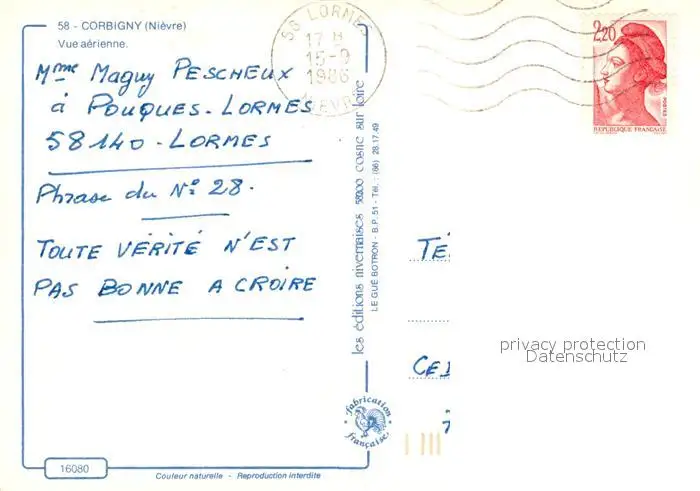 58 - CORBIGNY (Nièvre)
Vue aérienne.
Mme Maguy PESCHEUX
à POUQUES-LORMES
58140 - LORMES
Phrase du N° 28.
TOUTE VÉRITÉ N'EST
PAS BONNE A CROIRE
16080
Couleur naturelle - Reproduction interdite
les éditions nivernaises 58200 cosne sur loire
LE GUÉ BOTRON - B.P. 51 - Tél. : (86) 28.17.49
fabrication
française
58 LORMES
17 H
15-9
1986
NIEVRE
2,20
POSTES
REPUBLIQUE FRANÇAISE
privacy protection
Datenschutz